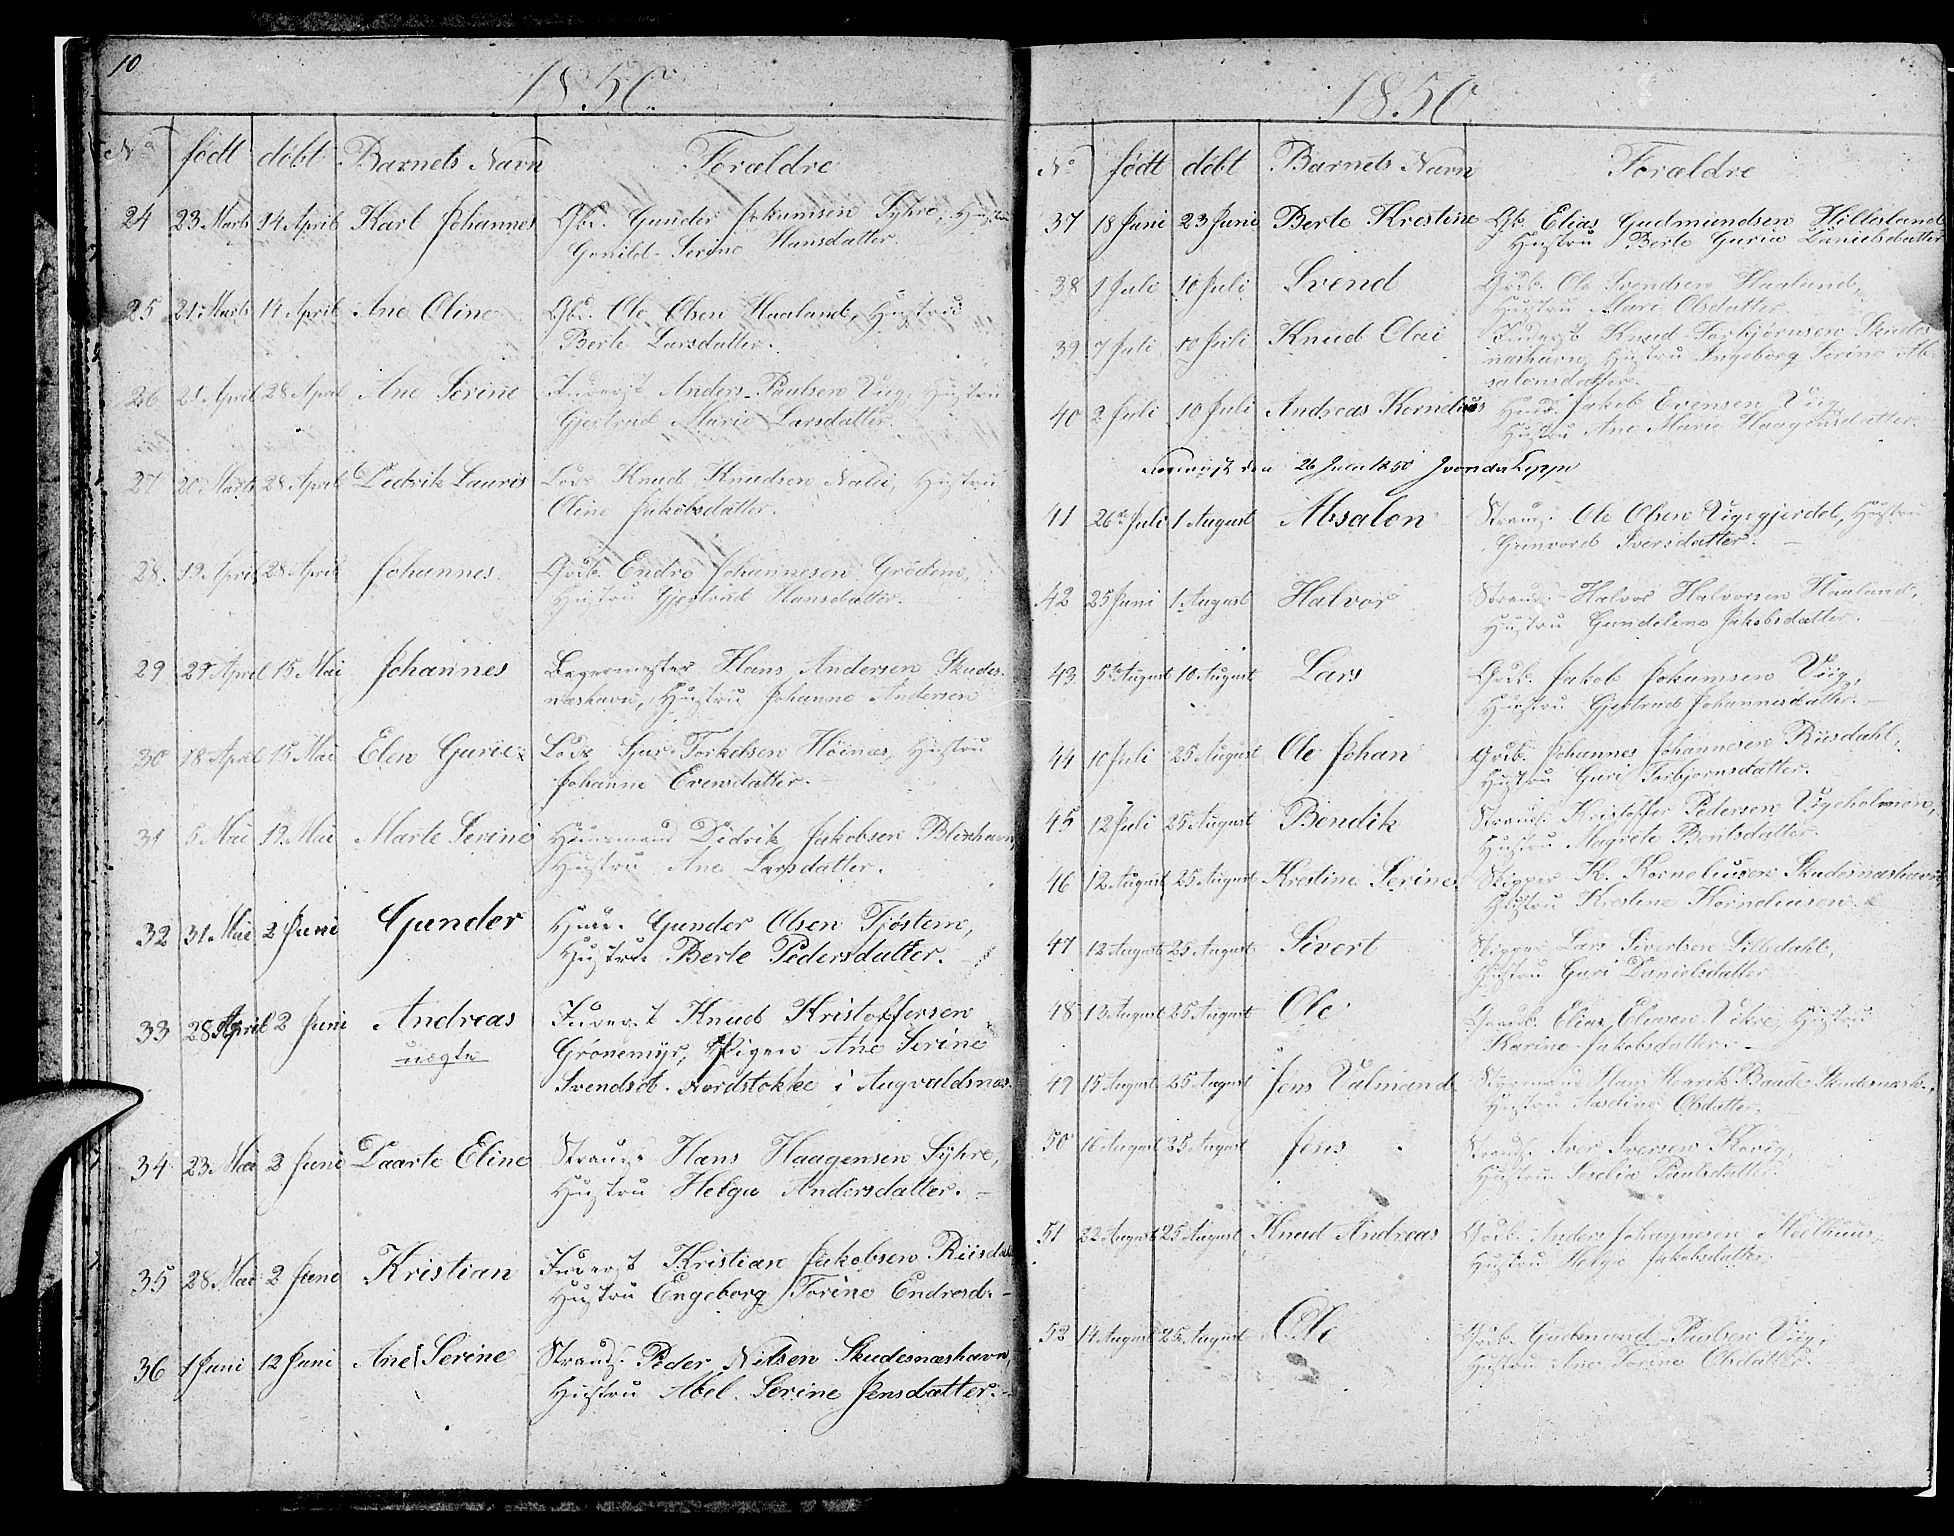 10
1850.
No født døbt Barnets Navn Forældre
24 23 Marts 14 April Karl Johannes Gbd. Gunder Johannsen Syhre, Hustru
Gonild Serine Hansdatter.
25 21 Marts 14 April Ane Oline Gbd. Ole Olsen Haaland, Hustru
Berte Larsdatter.
26 21 April 28 April Ane Serine Inderst Anders Paulsen Viig, Hustru
Gjertrud Marie Larsdatter.
27 20 Marts 28 April Didrik Lauris Lods Knud Knudsen Hustru
Oline Jakobsdatter.
28. 19 April 28 April Johannes Grdb. Endre Johannesen Grødem,
Hustru Gjertrud Hansdatter.
29 29 April 15 Mai Johannes Bagermester Hans Andersen Skudes-
næshavn, Hustru Johanne Andersen
30 18 April 15 Mai Elen Gurie Lods Sjur Torkelsen Høines, Hustru
Johanne Evensdatter.
31 5 Mai 12 Mai Marte Serine Huusmand Didrik Jakobsen Blixhavn,
Hustru Ane Larsdatter.
32 31 Mai 2 Juni Gunder Huusm. Gunder Olsen Tjøstem,
Hustru Berte Pedersdatter.
33 28 April 2 Juni Andreas Inderst Knud Kristoffersen
uægte Grønemyr, Pigen Ane Serine
Svendsd. Nordstokke i Augvaldsnæs.
34 23 Mai 2 Juni Daarte Eline Strands. Hans Haagensen Syhre,
Hustru Helga Andersdatter.
35 28 Mai 2 Juni Kristian Inderst Kristian Jakobsen Riisdal
Hustru Engeborg Torine Endresd.
36 1 Juni 12 Juni Ane Serine Strands. Peder Nilsen Skudesnæshavn,
Hustru Abel Serine Jensdatter.
1850
No født døbt Barnets Navn Forældre
37 18 Juni 23 Juni Berte Krestine Gb. Elias Gudmundsen Hillesland
Hustru Berte Guria Danielsdatter
38 1 Juli 10 Juli Svend Grdb. Ole Svendsen Haaland,
Hustru Mari Olsdatter.
39 7 Juli 10 Juli Knud Olai Inderst Knud Torbjørnsen Skudes
næshavn, Hustru Ingeborg Serine Ab-
salonsdatter.
40 2 Juli 10 Juli Andreas Kornelius Huus. Jakob Evensen Viig
Hustru Ane Marie Haagensdatter.
den 26 Juli 1850
41 26de Juli 1 August Absalon Strands. Ole Olsen Vigegjerdet, Hustru
Gunvord Iversdatter.
42 25 Juni 1 August Halvor Strands. Halvor Halvorsen Haaland,
Hustru Gundeline Jakobsdatter.
43 5te August 10 August Lars Grdb. Jakob Johannsen Viig,
Hustru Gjertrud Johannesdatter.
44 10 Juli 25 August Ole Johan Grdb. Johannes Johannesen Riisdahl,
Hustru Guri Torbjørnsdatter.
45 12 Juli 25 August Bendik Strands. Kristoffer Pedersen Vigeholmen,
Hustru Magrete Beritsdatter.
46 12 August 25 August Krestine Serine Skipper K. Korneliusen Skudesnæshavn,
Hustru Krestine Korneliusen.
47 12 August 25 August Sivert Skipper Lars Sivertsen Lilledahl,
Hustru Guri Danielsdatter
48 12 August 25 August Ole Gaardb. Elias Eliasen Vikre, Hustru
Karine Jakobsdatter.
49 15 August 25 August Jens Valmand Styrmand Hans Henrik Baade Skudesnæsh.,
Hustru Olsdatter.
50 16 August 25 August Jens Strands. Iver Iversen Kirvig,
Hustru Paulsdatter.
51 22 August 25 August Knud Andreas Grdb. Anders Johannesen Medhuus,
Hustru Helge Jakobsdatter.
52 14 August 25 August Ole Grdb. Gudmund Paulsen Viig,
Hustru Ane Torine Olsdatter.